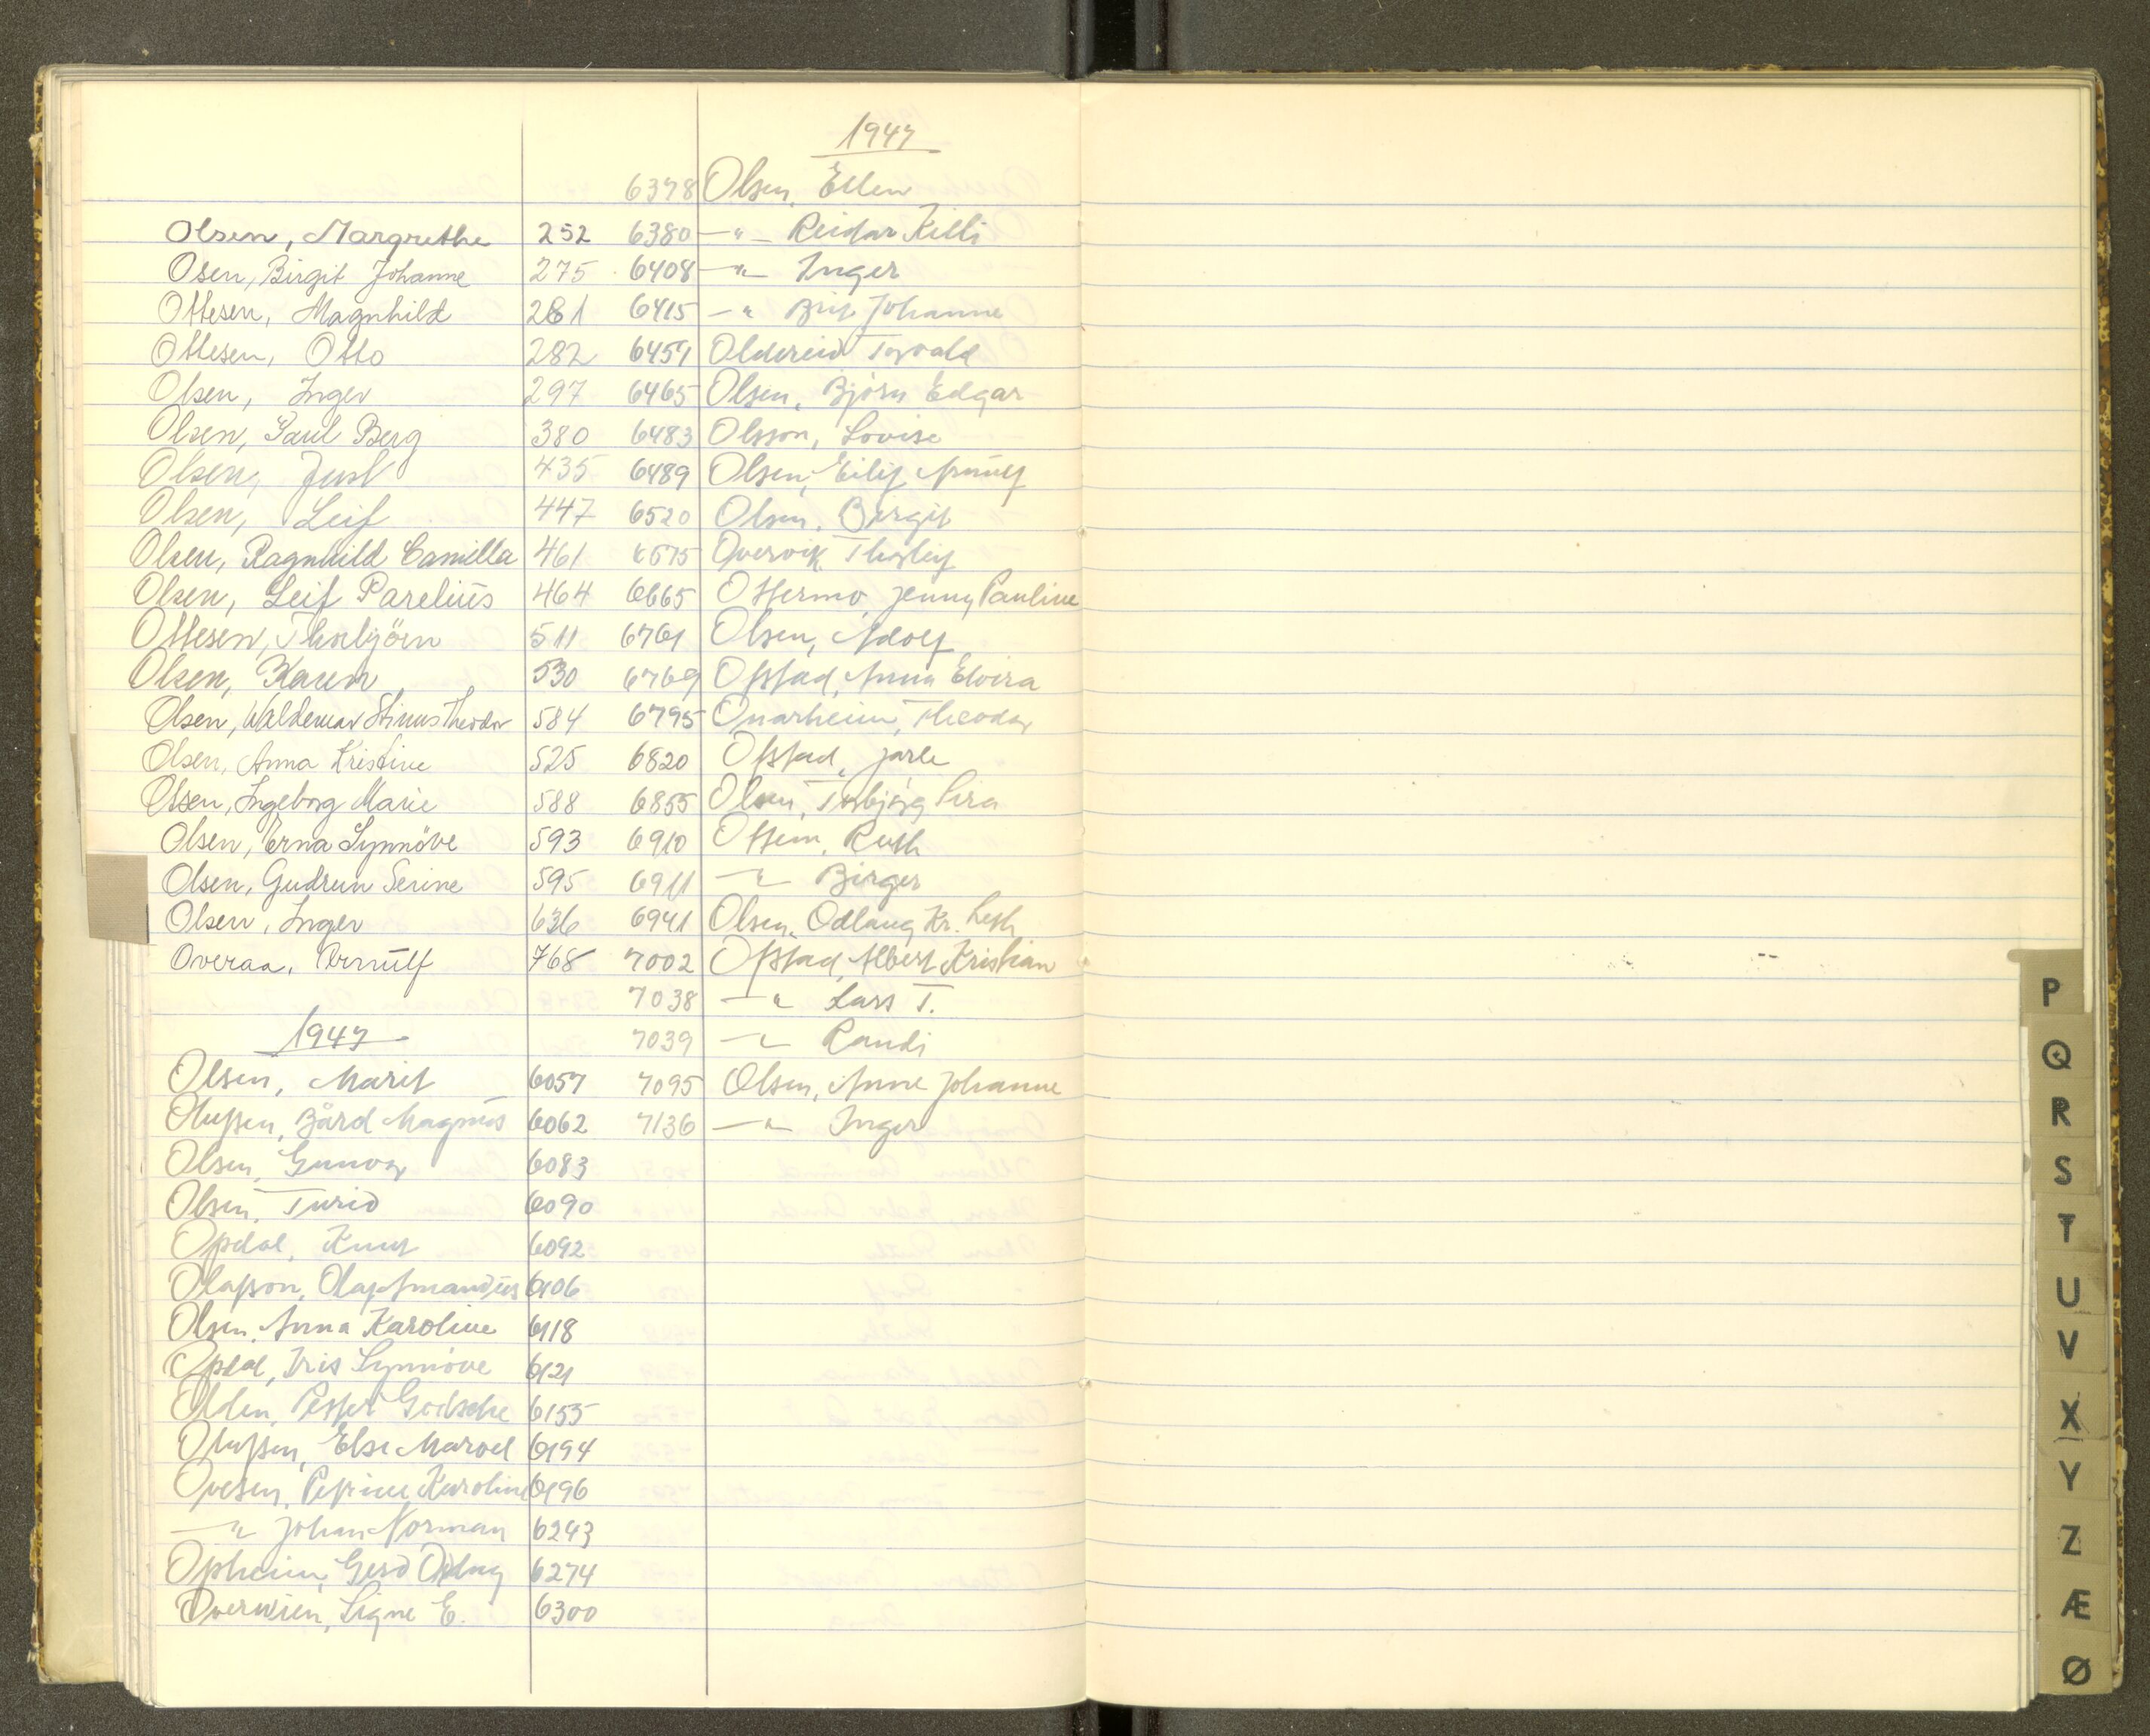 Olsen, Margrethe 252
Osen, Birgit Johanne 275
Ottesen, Magnhild 281
Ottesen, Otto 282
Olsen, Inger 297
Olsen, Paul Berg 380
Olsen, Just 435
Olsen, Leif 447
Olsen, Ragnhild Camilla 461
Olsen, Leif Parelius 464
Ottesen, Thorbjörn 511
Olsen, Karen 530
Olsen, Waldemar Stinus Theodor 584
Olsen, Anna Kristine 525
Olsen, Ingeborg Marie 588
Olsen, Erna Synnöve 593
Olsen, Gudrun Serine 595
Olsen, Inger 636
Overaa, Arnulf 768
1947
Olsen, Marit 6057
Olufsen, Bård Magnus 6062
Olsen, Gunvor 6083
Olsen, Turid 6090
Opdal, Knut 6092
Olafson, Olaf Amandus 6106
Olsen, Anna Karoline 6118
Opdal, Iris Synnöve 6121
Olden, Petter Godsche 6155
Olufsen, Else Maroel 6194
Ovesen, Petrine Karoline 6196
—"— Johan Norman 6243
Opheim, Gerd Oddny 6274
Overwien, Signe E. 6300
1947
6378 Olsen, Ellen
6380 —"— Reidar Killi
6408 —"— Inger
6415 —"— Brit Johanne
6457 Oldereid Torvald
6465 Olsen, Bjørn Edgar
6483 Olsson, Lovise
6489 Olsen, Eilif Arnulf
6520 Olsen, Birgit
6575 Overvik, Thorleif
6665 Ottermo, Jenny Pauline
6761 Olsen, Adolf
6769 Ofstad, Anna Elvira
6795 Onarheim, Theodor
6820 Ofstad, Jarle
6855 Olsen, Torbjørg Lira
6910 Ottem, Ruth
6911 —"— Birger
6941 Olsen, Odlaug Kr.
7002 Ofstad, Albert Kristian
7038 —"— Lars T.
7039 —"— Randi
7095 Olsen, Anne Johanne
7136 —"— Inger
P
Q
R
S
T
U
V
X
Y
Z
Æ
Ø